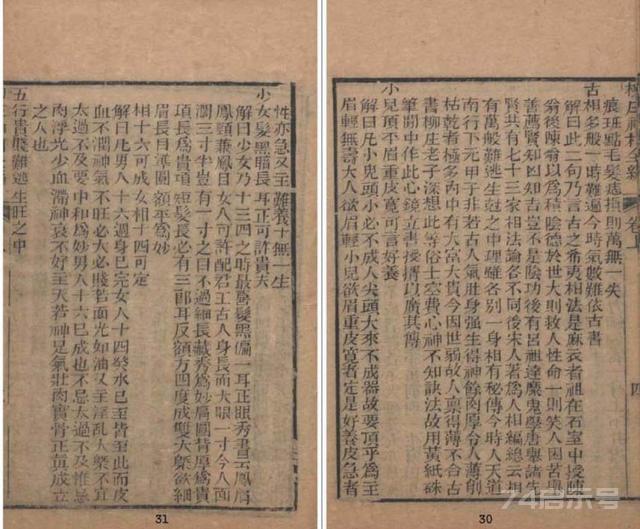 卷上
四
痕班點毛髮痣損則萬無一失
古相多般一時難遍今時氣數難依古書
解曰此二句乃言古之希夷相法是麻衣者祖在石室中授陳
翁後陳翁云救積陰德於世大則救人性命一則笑人困苦學
善薦賢知凶知吉豈不是陰功後有呂祖達摩鬼學唐舉諸先
賢共有七十三家相法論各不同後宋人若爲人相編總云相
有萬般難逃生尅之中理雖各別一身相有秘傳今時人天道
南行下元甲于非若古人氣壯身强生得神餘肉厚令人薄削
枯乾者極多內中有大富大貴今因世弱故人稟得薄不合古
書柳庄老子深想此等俗士空費心神不知訣法故用黃紙硃
筆閒中作此心鏡立書授以廣傳其
小兒項正眉重皮寬可言好養
解曰小兒頭小必不成人尖頭大來不成器故要項平爲主
眉輕無壽大人欲眉輕小兒欲眉重皮寬者定是好養皮急者
30
性亦急又主難養十無一生
少女髮黑暗長耳正可許貴夫
解曰少女乃十三四之時最愛髮黑偏一耳正眼秀書云鳳眉
鳳頸兼鳳目女人可許配君王古人身長面大眼一寸今人面
濶三寸半豈有一寸之目不過細長藏秀爲妙肩圓背厚爲貴
項長爲貴項短髮長必有三郎耳反額方四度成雙大槩欲細
眉長目得準圓額平爲妙
相十六可成女相十四可定
解曰凡男人十六週身已完女人十四癸水已至皆至此而皮
血不潤神氣不旺必大必賤若面光如油又主淫乱人槩不宜
太過不及要中和爲妙男人十六已成也不忌太過不及惟忌
肉浮光少血濶神衰不好主夭若神足氣壯肉實骨正眞成立
之人也
五行貴賤難逃生旺之中
31
74启示号